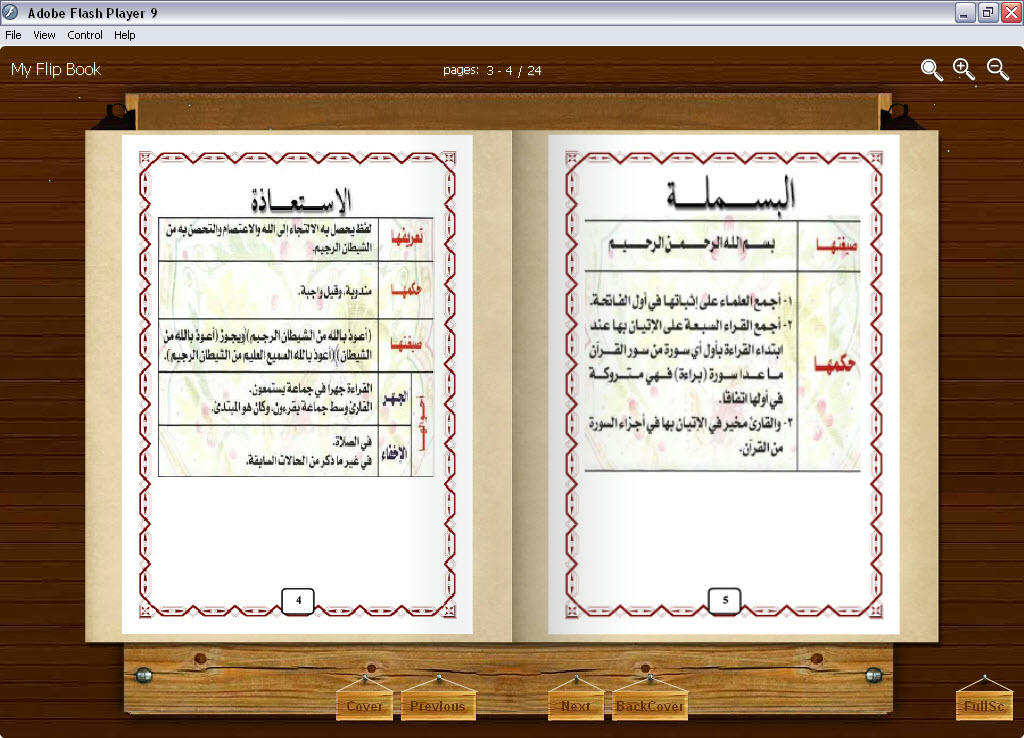 Adobe Flash Player 9
File View Control Help
My Flip Book
pages: 3 - 4 / 24
الاستعاذة
تعريفها
لفظ يحصل به الالتجاء إلى الله والاعتصام والتحصن به من
الشيطان الرجيم.
حكمها
مندوبة، وقيل واجبة.
صيغتها
(أعوذ بالله من الشيطان الرجيم) ويجوز (أعوذ بالله من
الشيطان) (أعوذ بالله السميع العليم من الشيطان الرجيم).
أحوالها
الجهر
القراءة جهرا في جماعة يستمعون.
القارئ وسط جماعة يقرءون، وكان هو المبتدئ.
الإخفاء
في الصلاة.
في غير ما ذكر من الحالات السابقة.
4
البسملة
صيغتها
بسم الله الرحمن الرحيم
حكمها
١- أجمع العلماء على إثباتها في أول الفاتحة.
٢- أجمع القراء السبعة على الإتيان بها عند
ابتداء القراءة بأول أي سورة من سور القرآن
ما عدا سورة (براءة) فهي متروكة
في أولها اتفاقا.
٣- والقارئ مخير في الإتيان بها في أجزاء السورة
من القرآن.
5
Cover Previous Next BackCover FullSc